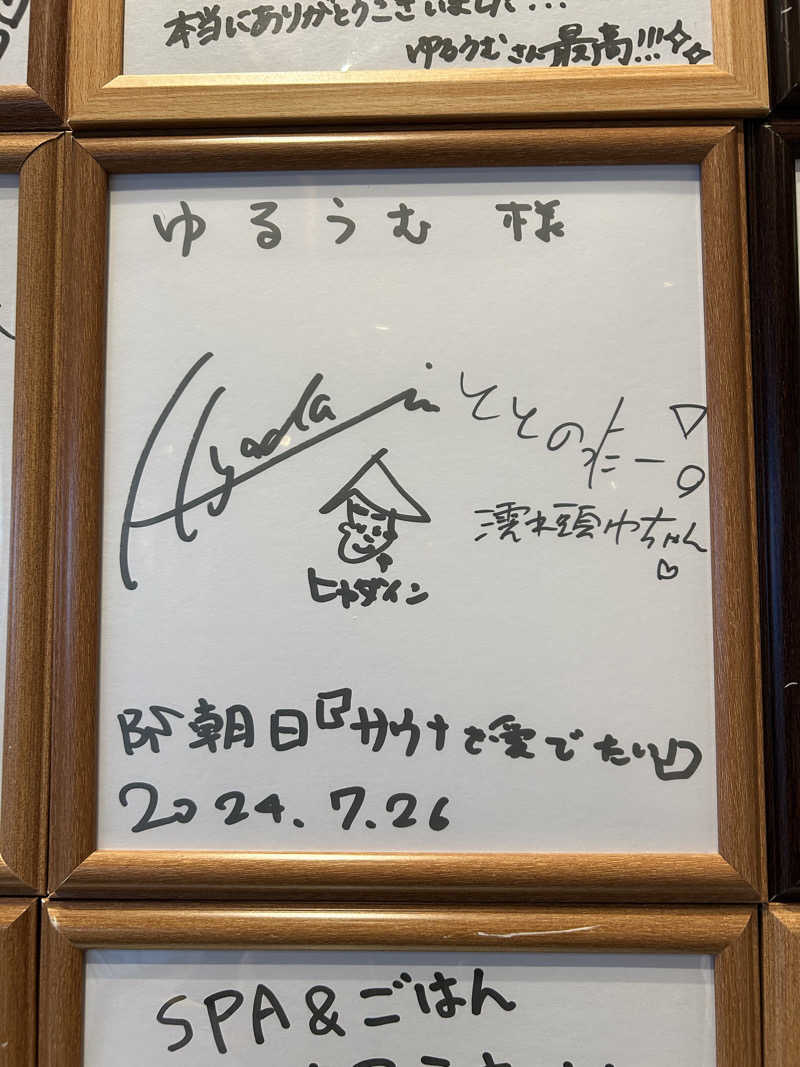 本当にありがとうございました...
ゆるうむさん最高!!!
ゆるうむ 様
Hyadain
ととのったー
濡れ頭ゆちゃん♡
ヒャダイン
BS朝日『サウナを愛でたい』
2024.7.26
SPA&ごはん